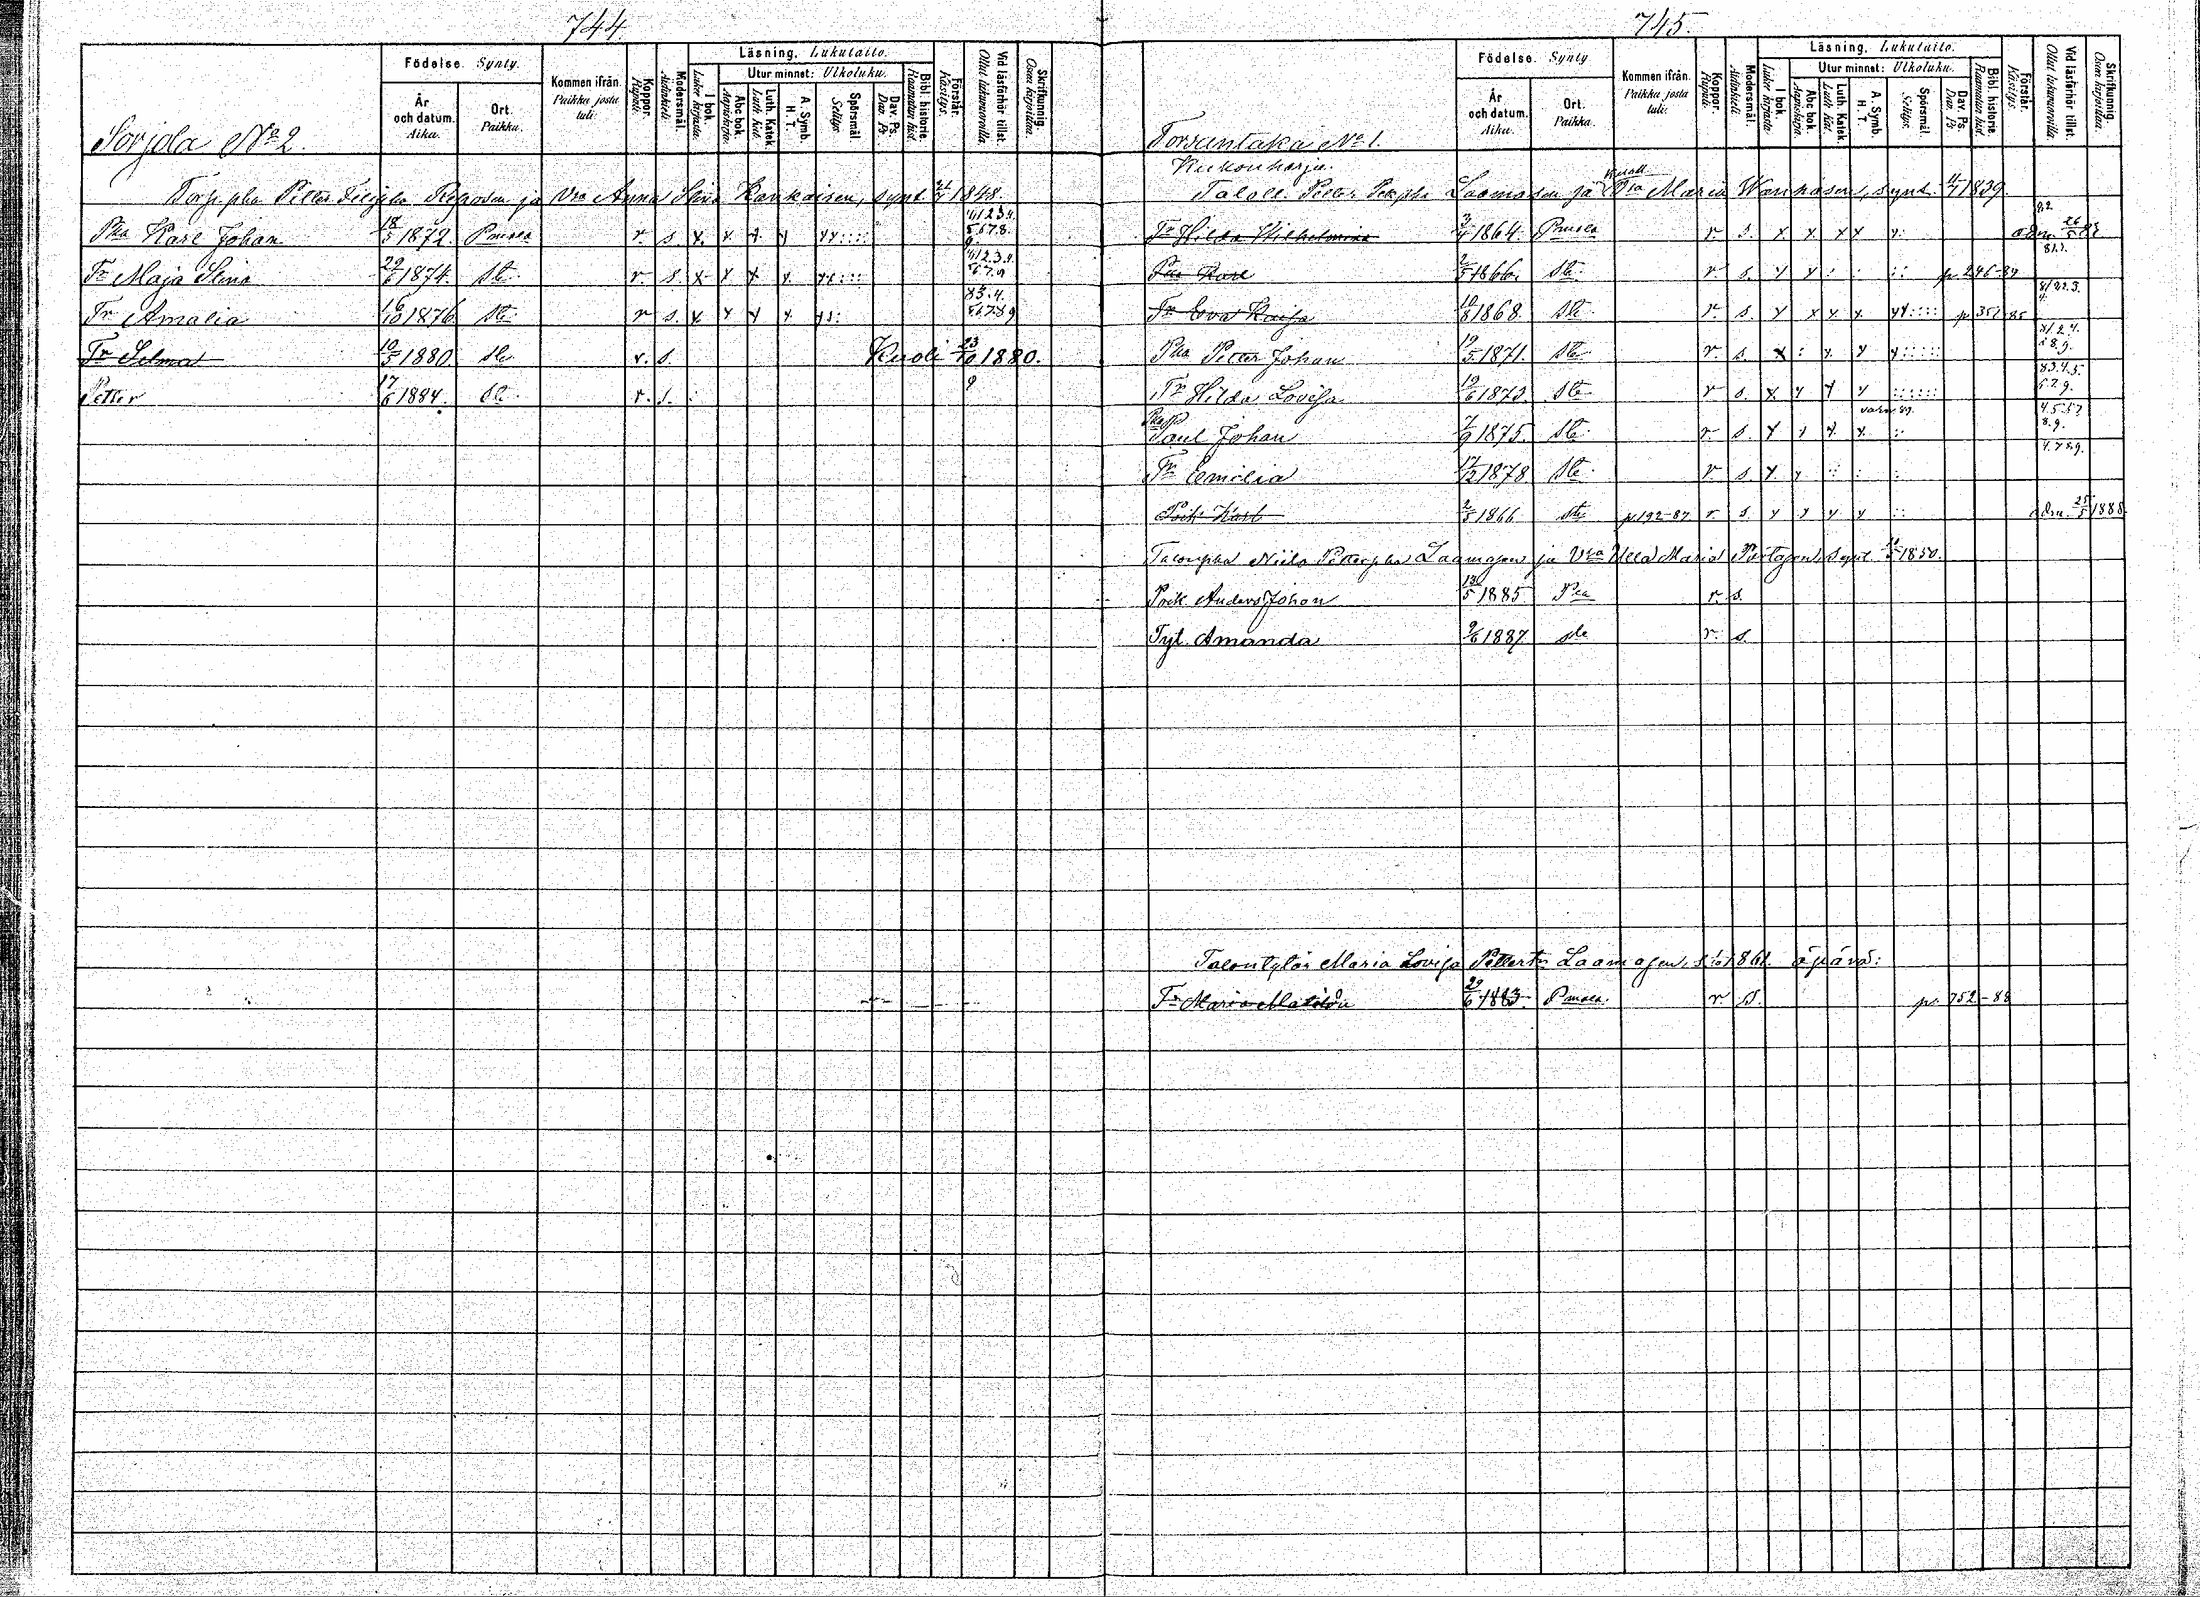 744.
Födelse. Synty.
År och datum. Aika.
Ort. Paikka.
Kommen ifrån. Paikka josta tuli.
Koppor. Rupuli.
Modersmål. Äidinkieli.
Läsning. Lukutaito.
I bok. Lukee kirjasta.
Utur minnet: Ulkoluku.
Abc bok. Aapiskirja.
Luth. Katek. Luth. Kat.
A. Symb. H. T.
Spörsmål. Selitys.
Dav. Ps. Dav. Ps.
Bibl. historie. Raamatun hist.
Förstår. Käsitys.
Vid läsförhör tillst. Ollut lukuvuoroilla.
Skrifkunnig. Osaa kirjoittaa.
Sorjola No 2.
Torp. pka Petter Filipka Reposen ja Vra Anna Stina Kankaisen, synt. 21/7 1848.
Pka Karl Johan 18/5 1872. Pmaea r. s. x x x x xx::: 81 2 3 4. 5 6 7 8. 9.
Tr Maja Stina 29/6 1874. ste r s. x x x x xx::: 81 2 3 4. 5 6 7 9
Tr Amalia 16/10 1876. ste r s. x x x x xx: 83. 4. 5 6 7 8 9
Tr Selma 10/5 1880. ste r. s. Kuoli 23/10 1880.
Petter 17/6 1884. ste r. s. : 9
745.
Födelse. Synty.
År och datum. Aika.
Ort. Paikka.
Kommen ifrån. Paikka josta tuli.
Koppor. Rupuli.
Modersmål. Äidinkieli.
Läsning. Lukutaito.
I bok. Lukee kirjasta.
Utur minnet: Ulkoluku.
Abc bok. Aapiskirja.
Luth. Katek. Luth. Kat.
A. Symb. H. T.
Spörsmål. Selitys.
Dav. Ps. Dav. Ps.
Bibl. historie. Raamatun hist.
Förstår. Käsitys.
Vid läsförhör tillst. Ollut lukuvuoroilla.
Skrifkunnig. Osaa kirjoittaa.
Torsantaka No 1.
Kukonharju.
Taloll. Petter Pekpka Laamasen ja Vra Maria Wanhasen, synt. 11/7 1839.
Tr Hilda Wilhelmina 3/4 1864. Pmaea r. s. x x x x x: 82. 26/5 82
Pka Karl 2/5 1866. ste r s. x x : : :: p. 246-84 81 2.
Tr Eva Kaisa 10/8 1868. ste r. s. x x x x xx:::: p. 351-85 81 82. 3. 4.
Pka Petter Johan 19/5 1871. ste r. s. x : x x x::::: 81. 2. 4. 8. 9.
Tr Hilda Lovisa 19/6 1873. ste r s. x x x x :::::: 83. 4. 5. 6 7 9.
Pka Paul Johan 7/9 1875. ste r. s. x x x x. :: 4. 5. 6 7. 8. 9.
Tr Emilia 17/12 1878. ste r. s. x x : : : 4. 7 8 9.
Poik Karl 2/5 1866 ste p. 192-87 r. s. x x x x :: 25/5 1888.
Talonpka Niilo Petterpka Laamasen ja Vra Ulla Maria Partasen, synt. 1850.
Poik. Anders Johan 13/5 1885 Pea r. s.
Tyt. Amanda 9/6 1887. ste r. s.
Talontytön Maria Lovisa Pettertr Laamasen, s. 1861. äpärä:
Tr Maria Matilda 29/6 1883. Pmaea. r s. p. 752-88